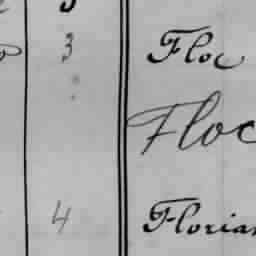 3 Floc
Floc
4 Florian